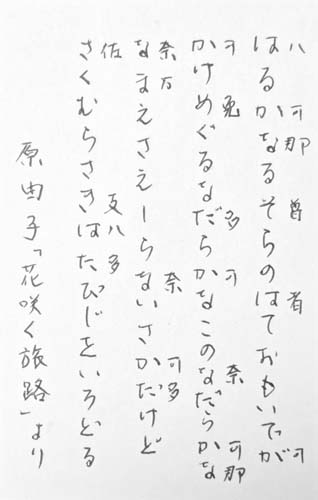 八 可那 曽 者 可
はるかなるそらのはておもいでが
可 免 多 可 奈 可那
かけめぐるなだらかなこのなだらかな
奈万 奈 可多
なまえさえしらないさかだけど
佐 支八多
さくむらさきはたびじをいろどる
原由子「花咲く旅路」より